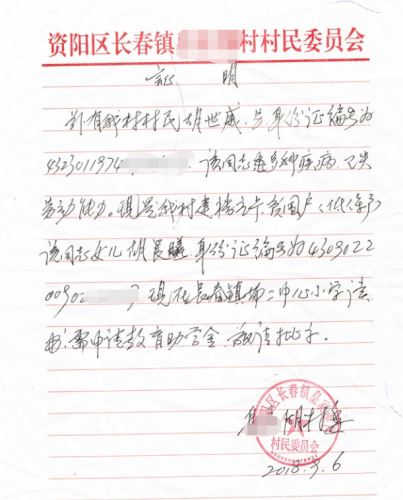 资阳区长春镇村村民委员会
证 明
兹有我村村民胡世威,身份证编号为
4323011974 该同志患多种疾病,已失
劳动能力。现是我村建档立卡贫困户(低保户)
该同志女儿胡晨曦,身份证编号为4309022
0090 现在长春镇第二中心小学读
书.需申请教育助学金.敬请批示。
湖村委
资阳区长春镇皇家
村民委员会
2018.9.6